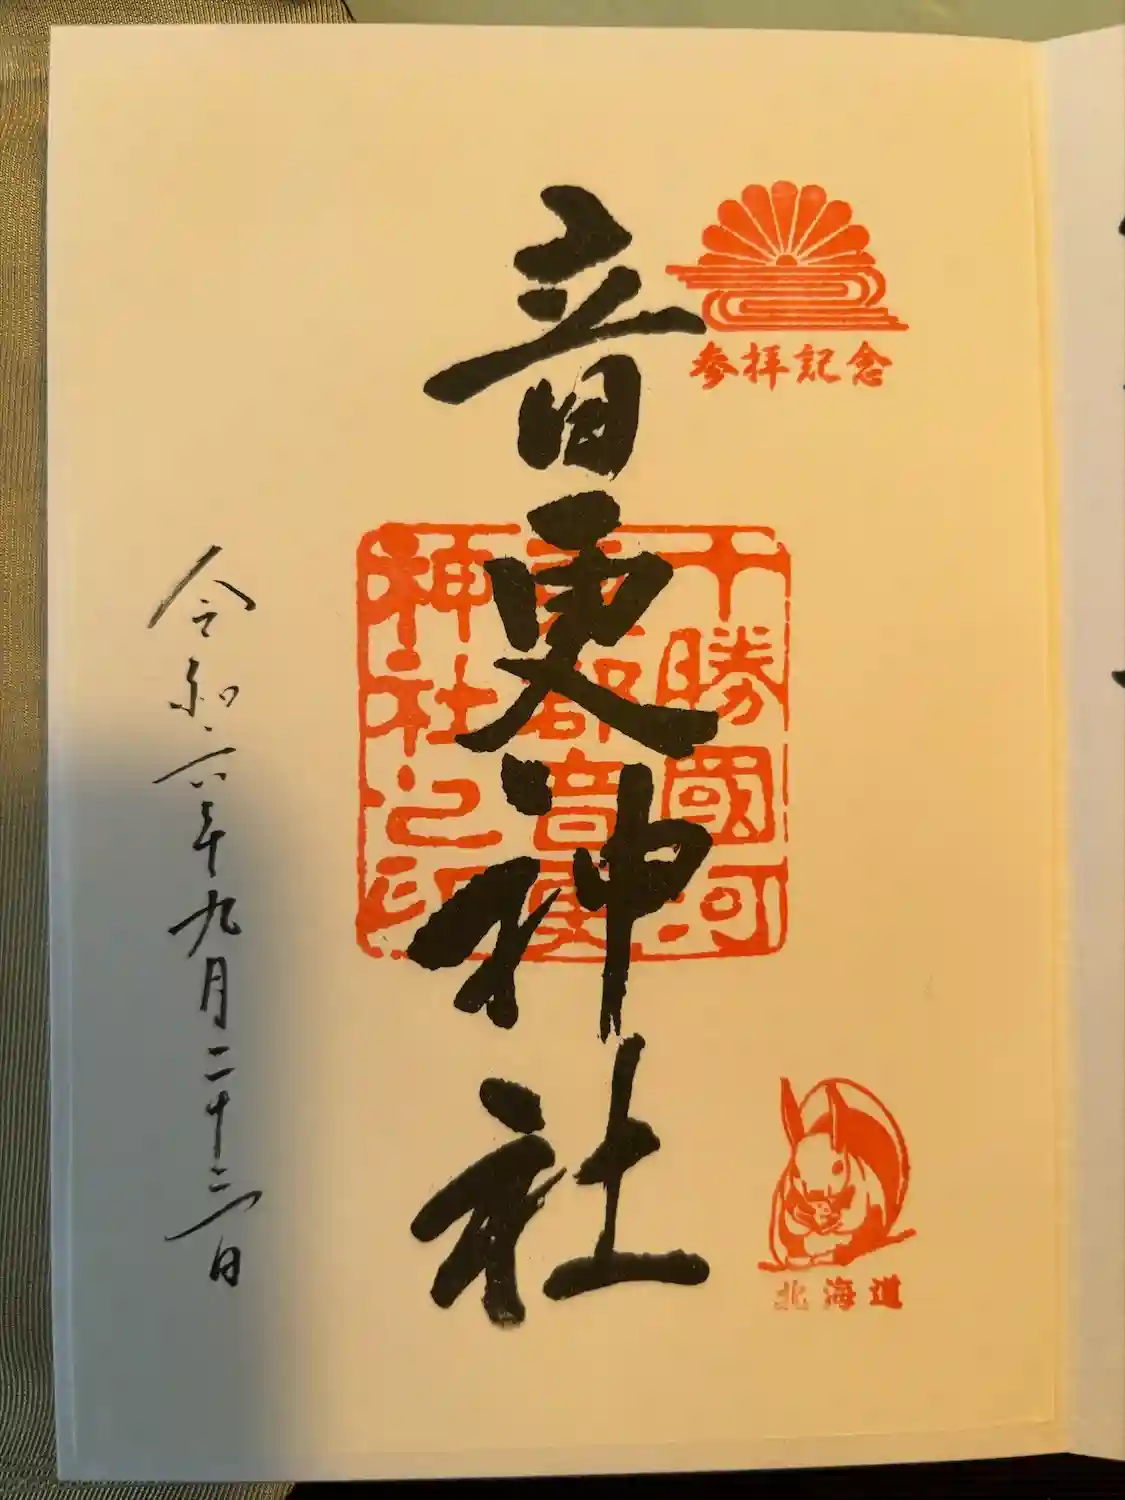 参拝記念
音更神社
十勝國河
東郡音更
神社之印
北海道
令和六年九月二十三日